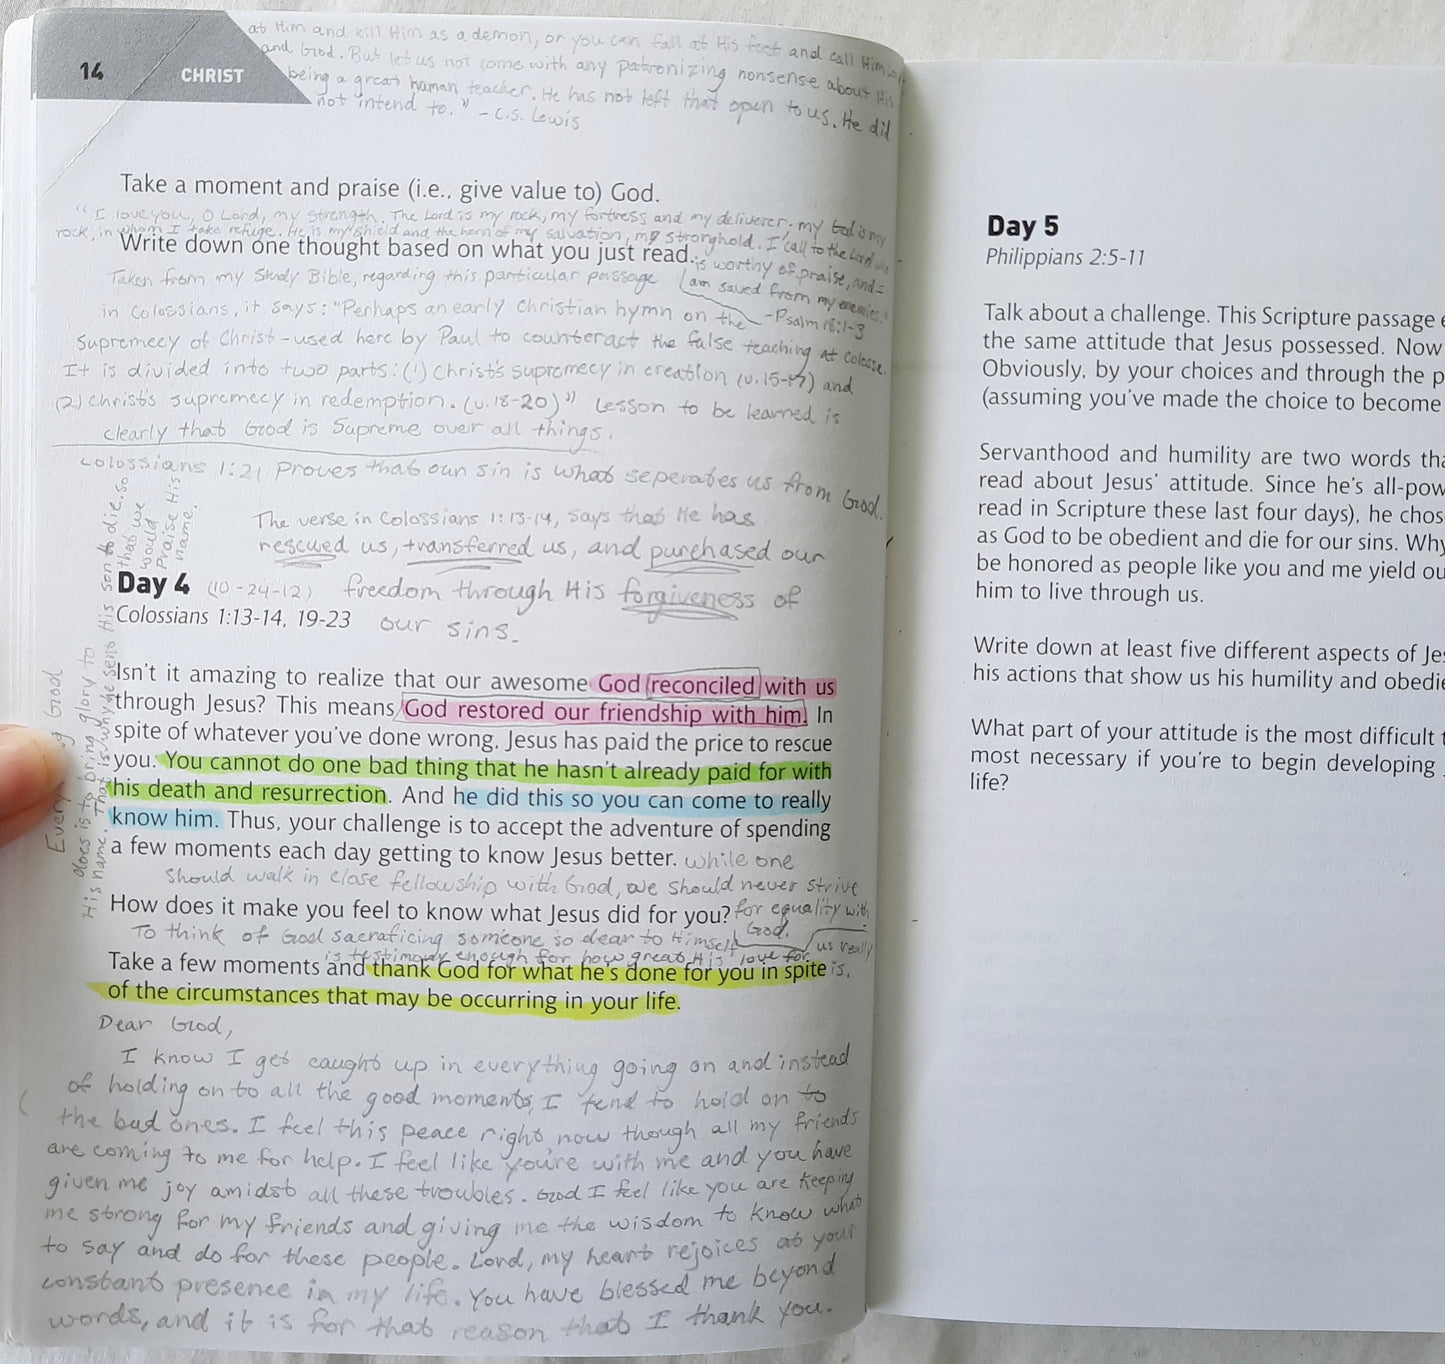 14 CHRIST
at Him and kill Him as a demon, or you can fall at His feet and call Him
and God. But let us not come with any patronizing nonsense about His
being a great human teacher. He has not left that open to us. He did
not intend to." - C.S. Lewis
Take a moment and praise (i.e., give value to) God.
"I love you, O Lord, my strength. The Lord is my rock, my fortress and my deliverer; my God is my
rock, in whom I take refuge. He is my shield and the horn of my salvation, my stronghold. I call to the Lord who
is worthy of praise, and
I am saved from my enemies."
- Psalm 18:1-3
Write down one thought based on what you just read.
Taken from my Study Bible, regarding this particular passage
in Colossians, it says: "Perhaps an early Christian hymn on the
Supremecy of Christ - used here by Paul to counteract the false teaching at Colosse.
It is divided into two parts: (1) Christ's supremecy in creation (v. 15-17) and
(2) Christ's supremecy in redemption. (v. 18-20)" Lesson to be learned is
clearly that God is Supreme over all things.
Colossians 1:21 proves that our sin is what seperates us from God.
The verse in Colossians 1:13-14, says that He has
rescued us, transferred us, and purchased our
freedom through His forgiveness of
our sins.
Day 4 (10-24-12)
Colossians 1:13-14, 19-23
Isn't it amazing to realize that our awesome God reconciled with us
through Jesus? This means God restored our friendship with him. In
spite of whatever you've done wrong, Jesus has paid the price to rescue
you. You cannot do one bad thing that he hasn't already paid for with
his death and resurrection. And he did this so you can come to really
know him. Thus, your challenge is to accept the adventure of spending
a few moments each day getting to know Jesus better.
while one
should walk in close fellowship with God, we should never strive
for equality with
God.
How does it make you feel to know what Jesus did for you?
To think of God sacraficing someone so dear to Himself
is testimony enough for how great His love for
us really
is.
Take a few moments and thank God for what he's done for you in spite
of the circumstances that may be occurring in your life.
Dear God,
I know I get caught up in everything going on and instead
of holding on to all the good moments, I tend to hold on to
the bad ones. I feel this peace right now though all my friends
are coming to me for help. I feel like you're with me and you have
given me joy amidst all these troubles. God I feel like you are keeping
me strong for my friends and giving me the wisdom to know what
to say and do for these people. Lord, my heart rejoices at your
constant presence in my life. You have blessed me beyond
words, and it is for that reason that I thank you.
God
does is to bring glory to
His name. That is why he sent His son to die. so
that we
would
praise His
name.
Day 5
Philippians 2:5-11
Talk about a challenge. This Scripture passage
the same attitude that Jesus possessed. Now
Obviously, by your choices and through the p
(assuming you've made the choice to become
Servanthood and humility are two words tha
read about Jesus' attitude. Since he's all-pow
read in Scripture these last four days), he chos
as God to be obedient and die for our sins. Why
be honored as people like you and me yield ou
him to live through us.
Write down at least five different aspects of Je
his actions that show us his humility and obedie
What part of your attitude is the most difficult t
most necessary if you're to begin developing
life?